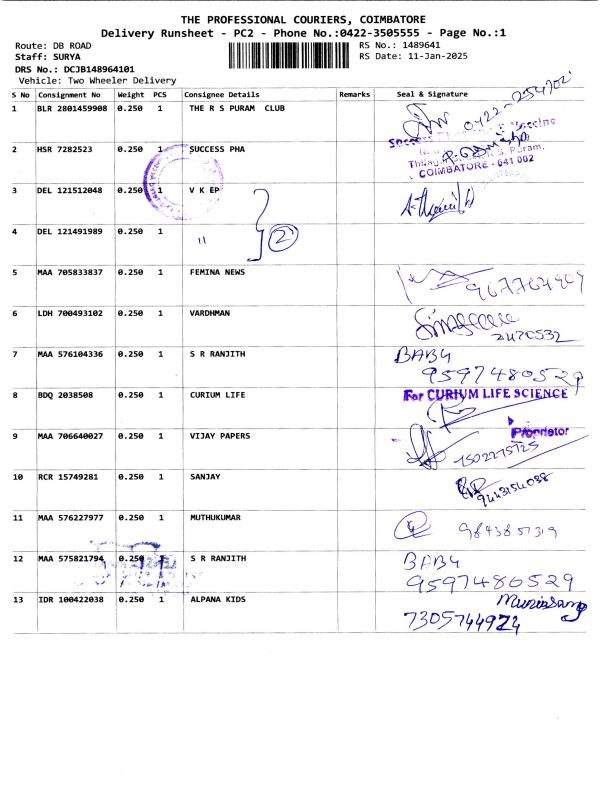 THE PROFESSIONAL COURIERS, COIMBATORE
Delivery Runsheet - PC2 - Phone No.:0422-3505555 - Page No.:1
Route: DB ROAD RS No.: 1489641
Staff: SURYA RS Date: 11-Jan-2025
DRS No.: DCJB148964101
Vehicle: Two Wheeler Delivery
S No Consignment No Weight PCS Consignee Details Remarks Seal & Signature
1 BLR 2801459908 0.250 1 THE R S PURAM CLUB
2 HSR 7282523 0.250 1 SUCCESS PHA
COIMBATORE - 641 002
3 DEL 121512048 0.250 1 V K EP
4 DEL 121491989 0.250 1 " 2
5 MAA 705833837 0.250 1 FEMINA NEWS
6 LDH 700493102 0.250 1 VARDHMAN
2470532
7 MAA 576104336 0.250 1 S R RANJITH BABY
9597480529
8 BDQ 2038508 0.250 1 CURIUM LIFE For CURIUM LIFE SCIENCE
Proprietor
9 MAA 706640027 0.250 1 VIJAY PAPERS
10 RCR 15749281 0.250 1 SANJAY
11 MAA 576227977 0.250 1 MUTHUKUMAR
12 MAA 575821794 0.250 1 S R RANJITH BABY
9597480529
13 IDR 100422038 0.250 1 ALPANA KIDS
7305744924